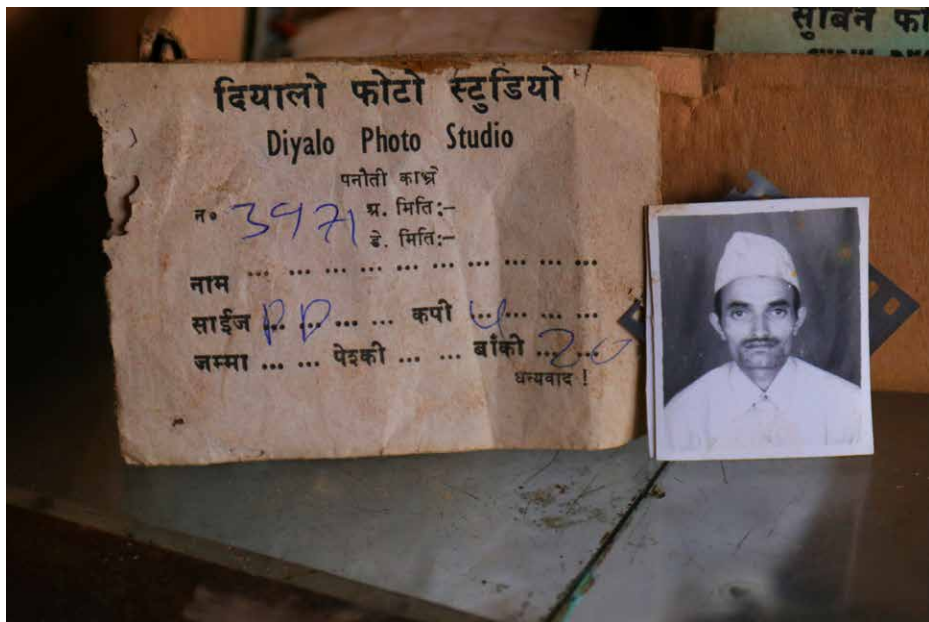 सुबिन फो
दियालो फोटो स्टुडियो
Diyalo Photo Studio
पनौती काभ्रे
न० 3971 अ. मिति:–
डे. मिति:–
नाम ... ... ... ... ... ... ... ... ... ...
साईज PP ... ... कपी 4 ... ... ...
जम्मा ... ... पेश्की ... ... बाँकी ... 20
धन्यवाद !